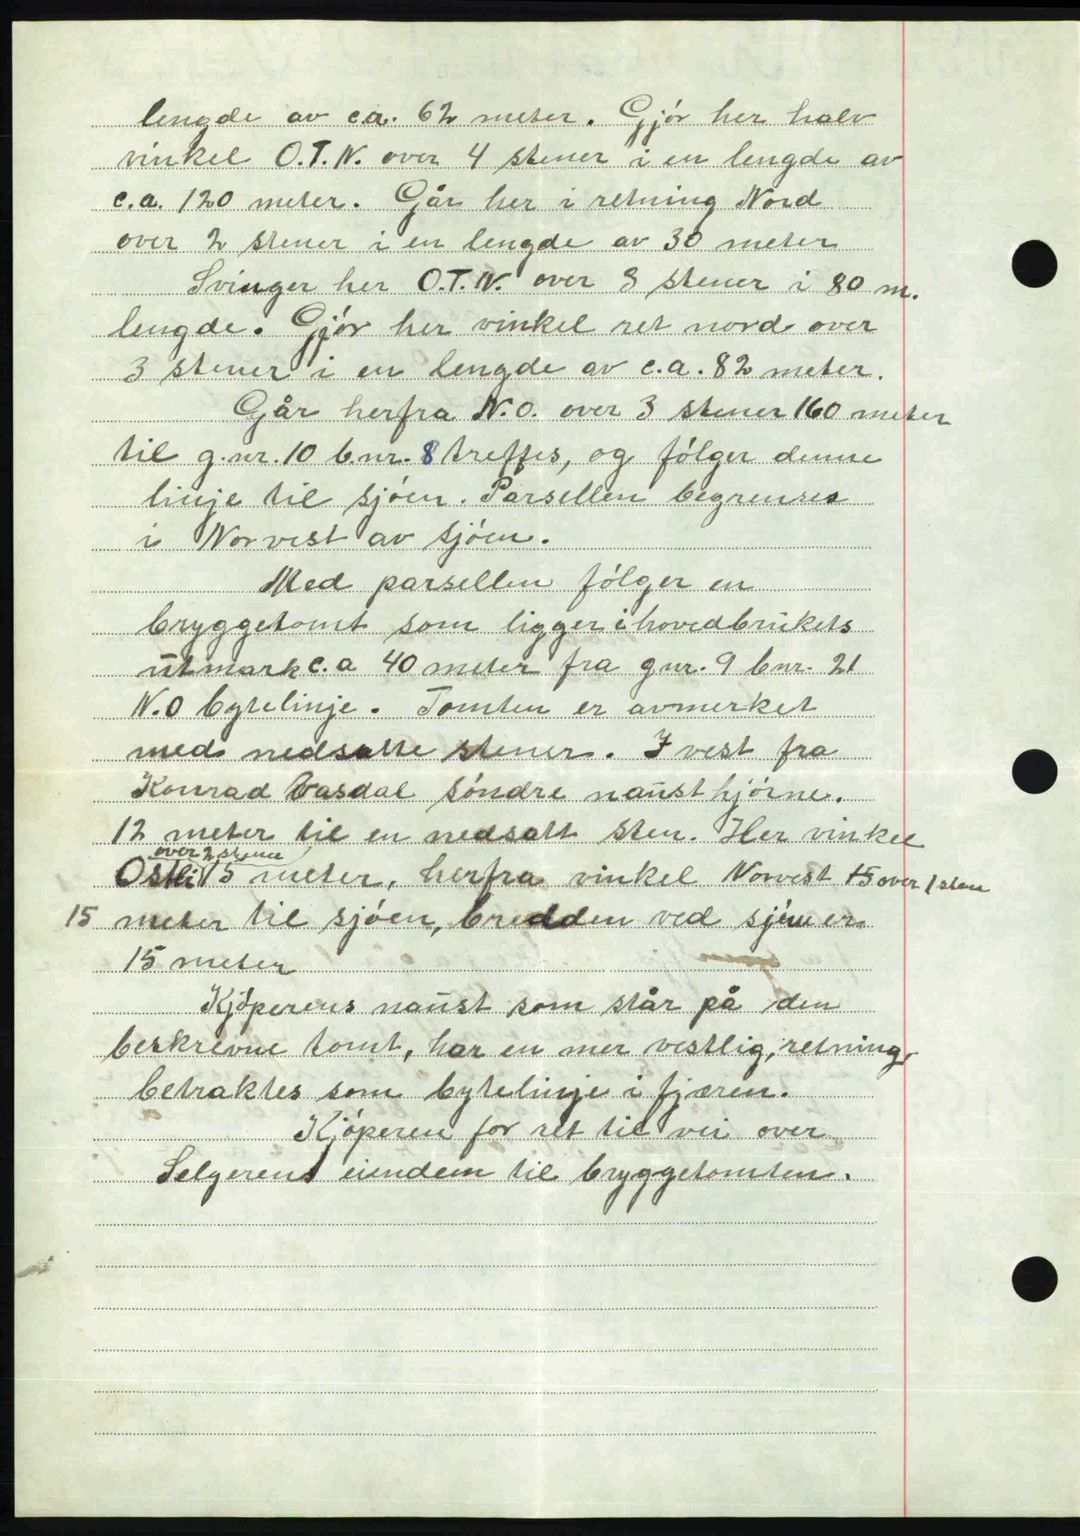 lengde av ca. 62 meter. Gjör her halv
vinkel O.T.N. over 4 stener i en lengde av
c.a. 120 meter. Går her i retning Nord
over 2 stener i en lengde av 30 meter
Svinger her O.T.N. over 3 stener i 80 m.
lengde. Gjör her vinkel ret nord over
3 stener i en lengde av c.a. 82 meter.
Går herfra N.O. over 3 stener 160 meter
til g.nr. 10 b.nr. 8 treffes, og fölger denne
linje til sjöen. Parsellen begrenses
i Norvest av sjöen.
Med parsellen fölger en
bryggetomt som ligger i hovedbrukets
utmark c.a 40 meter fra gnr. 9 bnr. 21
N.O bytelinje. Tomten er avmerket
med nedsatte stener. I vest fra
Konrad Vasdal söndre naust hjörne.
12 meter til en nedsatt sten. Her vinkel
over 2 stene
Ostli 15 meter, herfra vinkel Norvest 15 over 1 sten
15 meter til sjöen, bredden ved sjöen er
15 meter
Kjöperens naust som står på den
beskrevne tomt, har en mer vestlig, retning,
betraktes som bytelinje i fjæren.
Kjöperen for ret til vei over
Selgerens eiendem til bryggetomten.